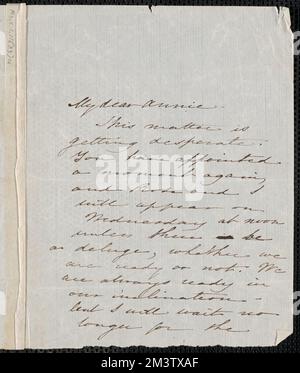 My dear Annie.
This matter is
getting desperate.
You have appointed
a moment again,
and I
will appear on
Wednesday at noon
unless there be
a deluge, whether we
are ready or not. We
are always ready in
our inclination -
but I will wait no
longer for the
alamy
Image ID: 2M3TXAF
www.alamy.com